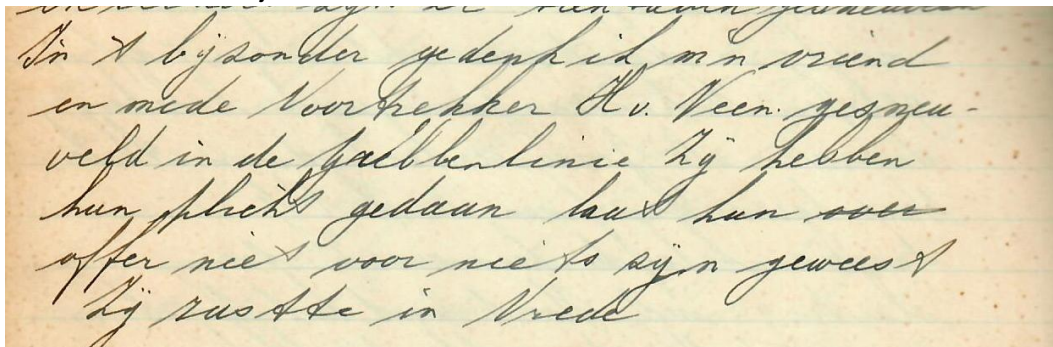 zijn er
In 't bijzonder gedenk ik m'n vriend
en mede Voortrekker H v. Veen. gesneu-
veld in de Grebbenlinie Zij hebben
hun plicht gedaan laat hun over
offer niet voor niets zijn geweest
Zij rustte in Vrede